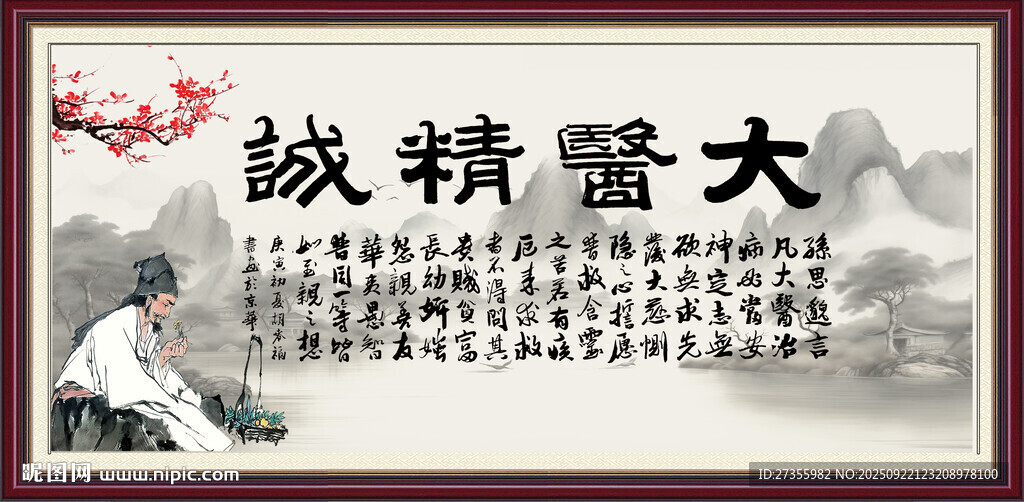 大醫精誠
孫思邈言
凡大醫治
病必當安
神定志無
欲無求先
發大慈惻
隱之心誓愿
普救含靈
之苦若有疾
厄来求救
者不得問其
貴賤貧富
長幼妍媸
怨親善友
華夷愚智
普同一等皆
如至親之想
庚寅初夏胡春福
書畫於京華
昵图网 www.nipic.com
ID:27355982 NO:20250922123208978100